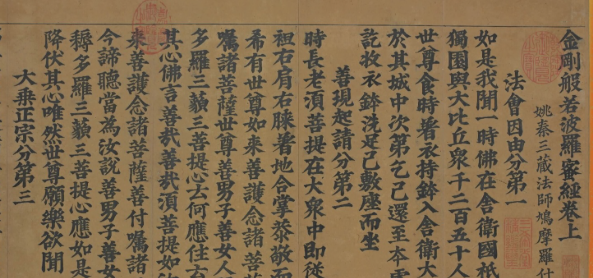 金剛般若波羅蜜經卷上
姚秦三藏法師鳩摩羅什
法會因由分第一
如是我聞一時佛在舍衛國祇
獨園與大比丘衆千二百五十人
世尊食時著衣持鉢入舍衛大
於其城中次第乞已還至本處
訖收衣鉢洗足已敷座而坐
善現起請分第二
時長老湏菩提在大衆中即從
袒右肩右膝著地合掌恭敬而
希有世尊如來善護念諸菩
囑諸菩薩世尊善男子善女人
多羅三藐三菩提心云何應住云
其心佛言善哉善哉湏菩提如
來善護念諸菩薩善付囑諸
今諦聽當為汝說善男子善女
耨多羅三藐三菩提心應如是
降伏其心唯然世尊願樂欲聞
大乗正宗分第三